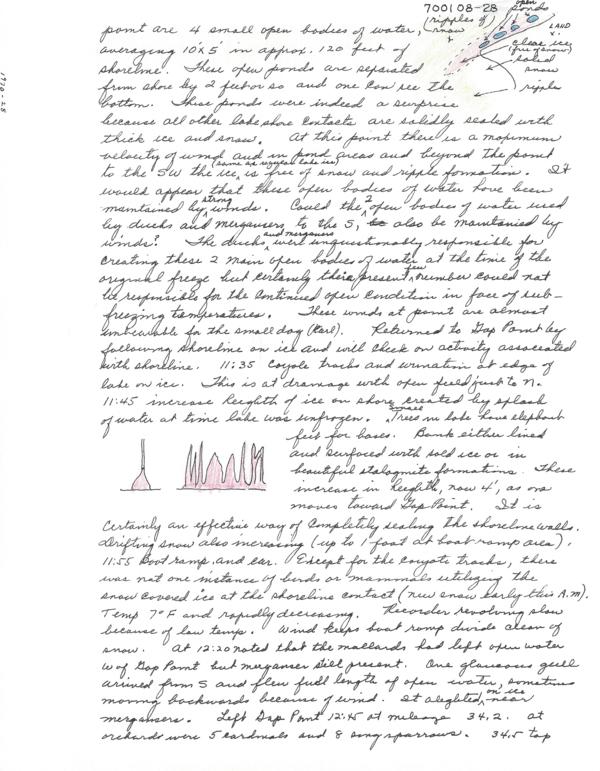 700108-28
open
ponds
(ripples of)
snow
LAND
clear ice
(free of snow)
solid
snow
ripple
1770-28
point are 4 small open bodies of water,
averaging 10'x5' in approx. 120 feet of
shoreline. These open ponds are separated
from shore by 2 feet or so and one can see the
bottom. These ponds were indeed a surprise
because all other lake shore contacts are solidly sealed with
thick ice and snow. At this point there is a maximum
velocity of wind and in pond areas and beyond the point
(same as regular lake ice)
to the SW the ice, is free of snow and ripple formation. It
would appear that these open bodies of water have been
maintained by strong winds. Could the 2 open bodies of water used
by ducks and mergansers to the S, also be maintained by
winds? The ducks and mergansers were unquestionably responsible for
creating these 2 main open bodies of water at the time of the
original freeze but certainly their present few number could not
be responsible for the continued open condition in face of sub-
freezing temperatures. These winds at point are almost
unbearable for the small dog (Karl). Returned to Gap Point by
following shoreline on ice and will check on activity associated
with shoreline. 11:35 Coyote tracks and urination at edge of
lake on ice. This is at drainage with open field just to N.
11:45 increase heighth of ice on shore created by splash
of water at time lake was unfrozen. Small Trees in lake have elephant
feet for bases. Bank either lined
and surfaced with solid ice or in
beautiful stalagmite formations. These
increase in heighth, now 4', as one
moves toward Gap Point. It is
certainly an effective way of completely sealing the shoreline walls.
Drifting snow also increasing (up to 1 foot at boat ramp area).
11:55 Boat ramp and car. Except for the coyote tracks, there
was not one instance of birds or mammals utilizing the
snow covered ice at the shoreline contact (new snow early this A.M).
Temp 7°F and rapidly decreasing. Recorder revolving slow
because of low temp. Wind keeps boat ramp divide clean of
snow. At 12:20 noted that the mallards had left open water
W of Gap Point but merganser still present. One glaucous gull
arrived from S and flew full length of open water, sometimes
moving backwards because of wind. It alighted, on ice near
mergansers. Left Gap Point 12:45 at mileage 34.2. At
orchards were 5 cardinals and 8 song sparrows. 34.5 top